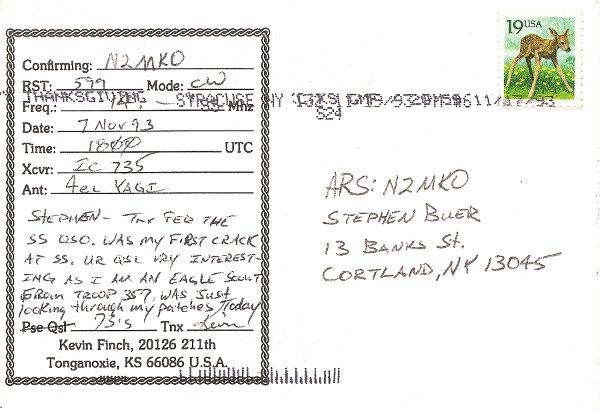 19 USA
Confirming: N2MKO
RST: 599 Mode: CW
THANKSGIVING - SYRACUSE NY
Freq.: 14. Mhz
Date: 7 Nov 93
Time: 1800 UTC
Xcvr: IC 735
Ant: 4 el YAGI
STEPHEN - TNX FER THE
SS QSO. WAS MY FIRST CRACK
AT SS. UR QSL VRY INTEREST-
ING AS I AM AN EAGLE SCOUT
FROM TROOP 357. WAS JUST
looking through my patches today
Pse Qsl 73's Tnx
Kevin Finch, 20126 211th
Tonganoxie, KS 66086 U.S.A.
ARS: N2MKO
STEPHEN BUER
13 BANKS St.
CORTLAND, NY 13045